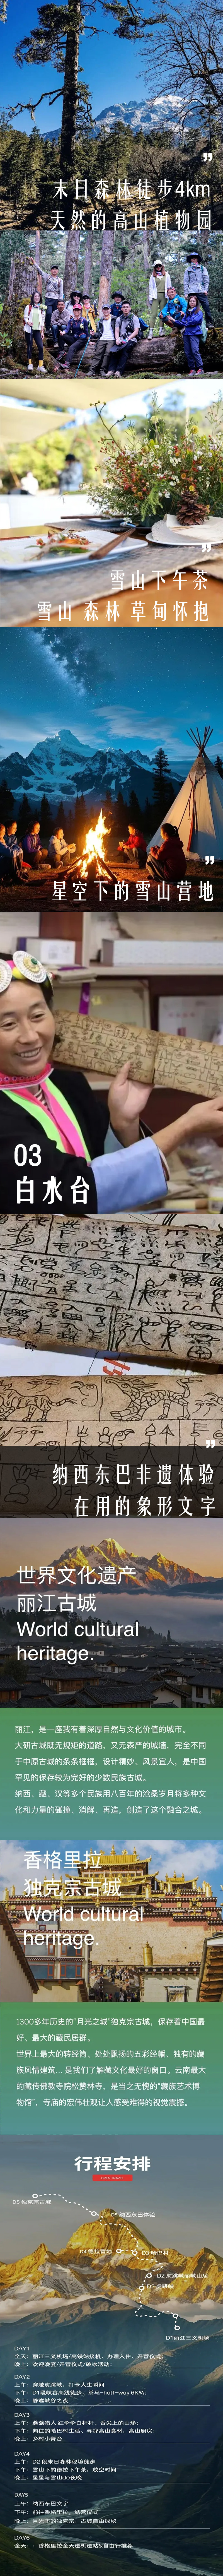 末日森林徒步4km
天然的高山植物园
雪山下午茶
雪山 森林 草甸怀抱
星空下的雪山营地
03
白水台
纳西东巴非遗体验
在用的象形文字
世界文化遗产
丽江古城
World cultural
heritage.
丽江，是一座我有着深厚自然与文化价值的城市。
大研古城既无规矩的道路，又无森严的城墙，完全不同
于中原古城的条条框框，设计精妙、风景宜人，是中国
罕见的保存较为完好的少数民族古城。
纳西、藏、汉等多个民族用八百年的沧桑岁月将多种文
化和力量的碰撞、消解、再造，创造了这个融合之城。
香格里拉
独克宗古城
World cultural
heritage.
1300多年历史的“月光之城”独克宗古城，保存着中国最
好、最大的藏民居群。
世界上最大的转经筒、处处飘扬的五彩经幡、独有的藏
族风情建筑... 是我们了解藏文化最好的窗口。云南最大
的藏传佛教寺院松赞林寺，是当之无愧的“藏族艺术博
物馆”，寺庙的宏伟壮观让人感受难得的视觉震撼。
行程安排
D5 独克宗古城
D2 虎跳峡
D1丽江三义机场
DAY1
全天：丽江三义机场/高铁站接机、办理入住、开营仪式；
晚上：欢迎晚宴/开营仪式/破冰活动；
DAY2
上午：穿越虎跳峡，打卡人生瞬间
下午：D1段峡谷高线徒步、茶马-half-way 6KM；
晚上：静谧峡谷之夜
DAY3
下午：向往的哈巴村生活、寻找高山食材、高山厨房；
晚上：乡村小舞台
DAY4
上午：D2 段末日森林秘境徒步
晚上：星星与雪山de夜晚
DAY5
上午：纳西东巴文字
下午：前往香格里拉，结营仪式
晚上：月光下的独克宗，古城自由探秘
DAY6